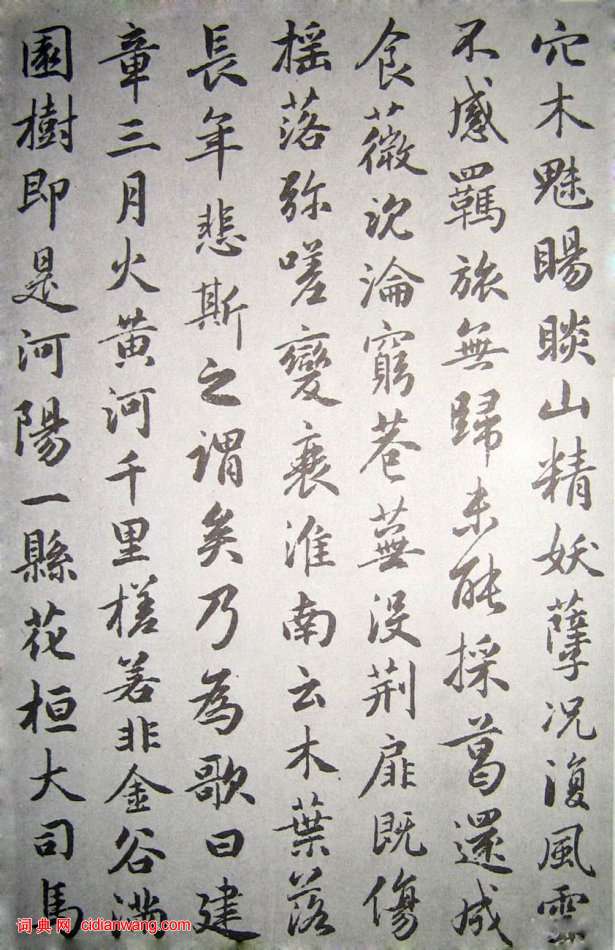 穴木魅睗睒山精妖孽況復風雲
不感羈旅無歸未能採葛還成
食薇沉淪窮巷蕪没荆扉既傷
摇落弥嗟變衰淮南云木葉落
長年悲斯之謂矣乃為歌曰建
章三月火黄河千里槎若非金谷满
園樹即是河陽一縣花桓大司馬
词典网 cidianwang.com